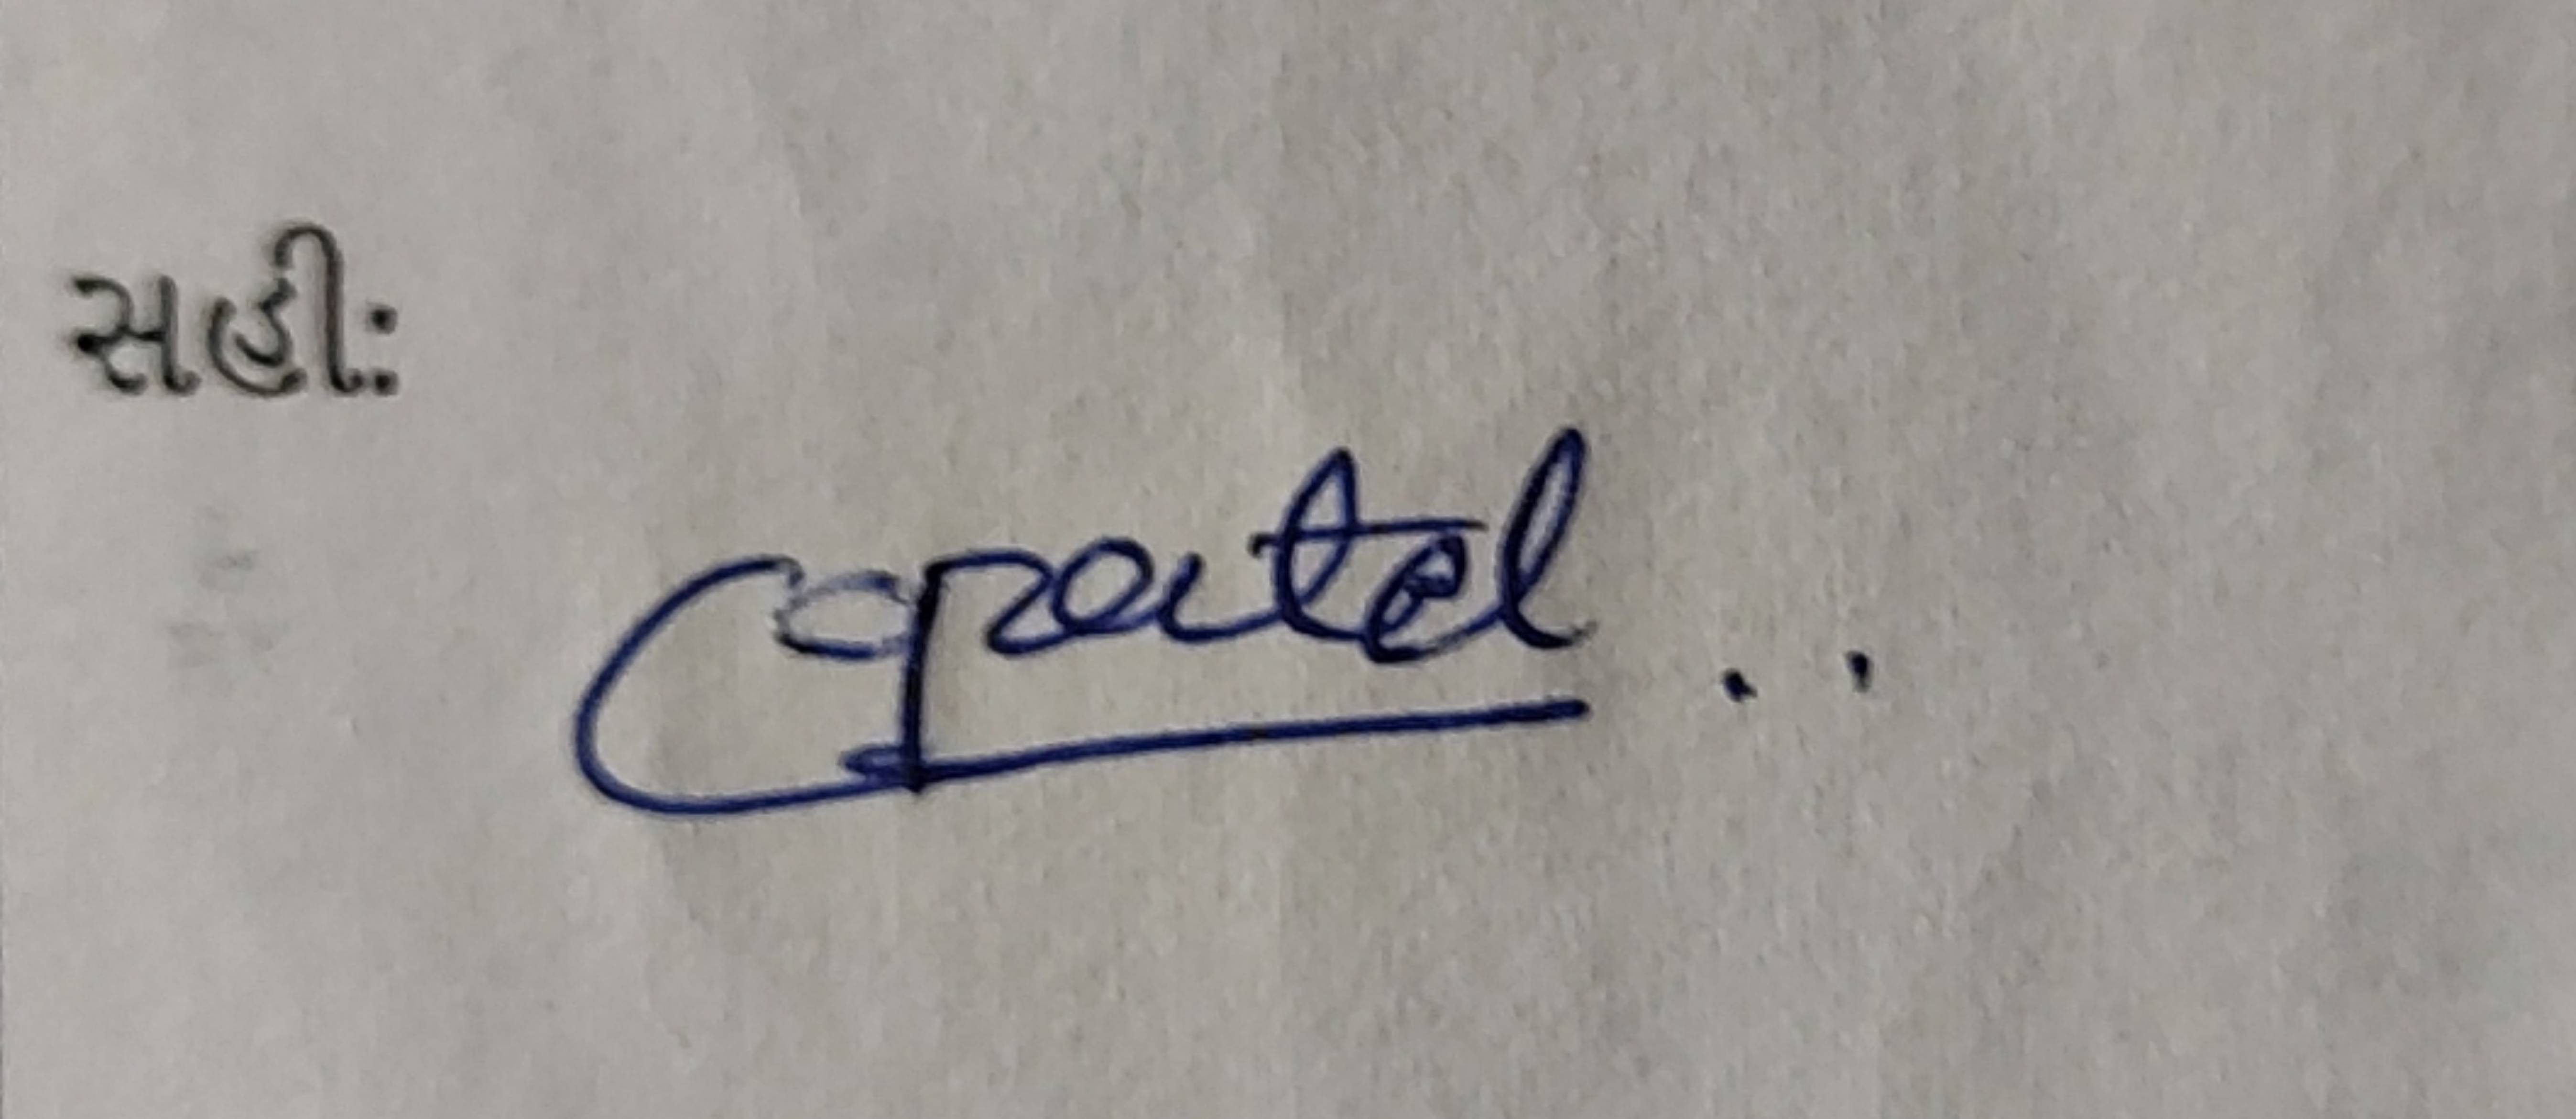 સહીઃ
cpatel..